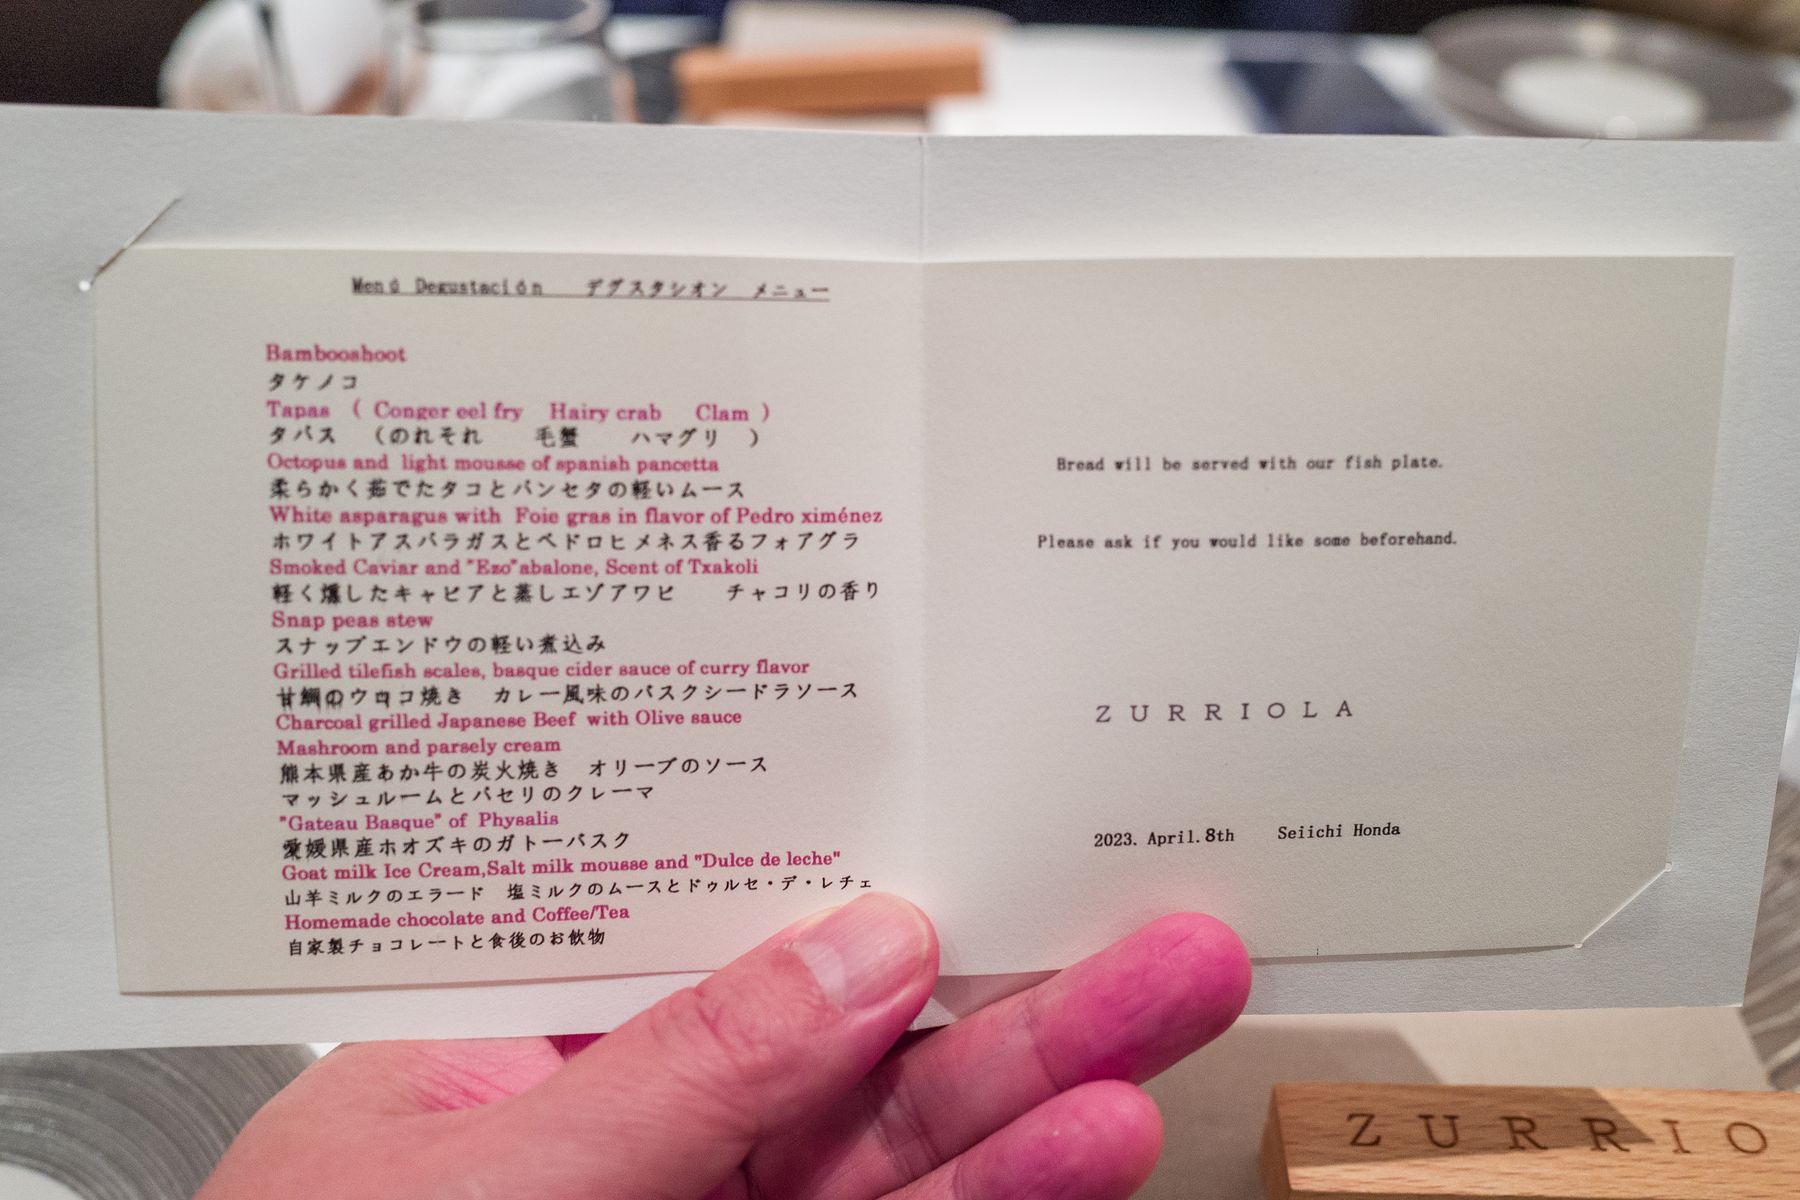 Menú Degustación デグスタシオン メニュー
Bambooshoot
タケノコ
Tapas ( Conger eel fry Hairy crab Clam )
タパス (のれそれ 毛蟹 ハマグリ )
Octopus and light mousse of spanish pancetta
柔らかく茹でたタコとパンセタの軽いムース
White asparagus with Foie gras in flavor of Pedro ximénez
ホワイトアスパラガスとペドロヒメネス香るフォアグラ
Smoked Caviar and "Ezo"abalone, Scent of Txakoli
軽く燻したキャビアと蒸しエゾアワビ チャコリの香り
Snap peas stew
スナップエンドウの軽い煮込み
Grilled tilefish scales, basque cider sauce of curry flavor
甘鯛のウロコ焼き カレー風味のバスクシードラソース
Charcoal grilled Japanese Beef with Olive sauce
Mashroom and parsely cream
熊本県産あか牛の炭火焼き オリーブのソース
マッシュルームとパセリのクレーマ
"Gateau Basque" of Physalis
愛媛県産ホオズキのガトーバスク
Goat milk Ice Cream,Salt milk mousse and "Dulce de leche"
山羊ミルクのエラード 塩ミルクのムースとドゥルセ・デ・レチェ
Homemade chocolate and Coffee/Tea
自家製チョコレートと食後のお飲物
Bread will be served with our fish plate.
Please ask if you would like some beforehand.
ZURRIOLA
2023. April.8th Seiichi Honda
ZURRIO